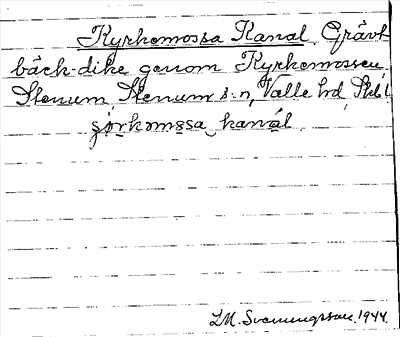 Kyrkomossa Kanal. Grävt
bäck-dike genom Kyrkomossen
Stenum, Stenum s:n, Valle hd, Skb.l.
sörkomssa kanál
LM. Svenungsson, 1944